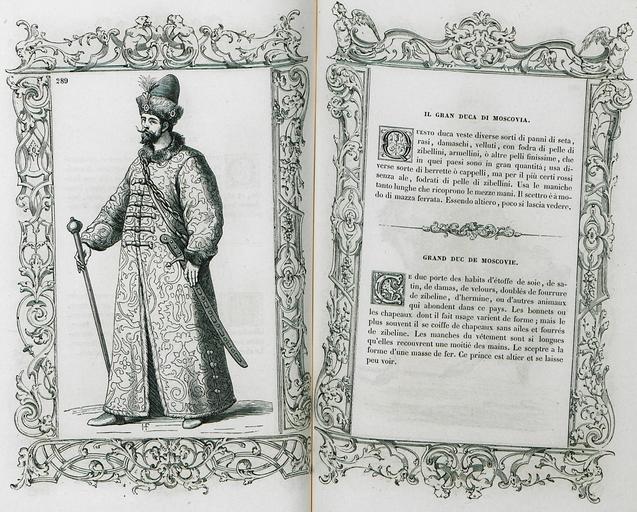 289
IL GRAN DUCA DI MOSCOVIA.
QUESTO duca veste diverse sorti di panni di seta,
rasi, damaschi, velluti, con fodra di pelle di
zibellini, armellini, ò altre pelli finissime, che
in quei paesi sono in gran quantita; usa di-
verse sorte di berrette ò cappelli, ma per il più certi rossi
senza ale, fodrati di pelle di zibellini. Usa le maniche
tanto lunghe che ricoprono le mezze mani. Il scettro è à mo-
do di mazza ferrata. Essendo altiero, poco si lascia vedere.
GRAND DUC DE MOSCOVIE.
CE duc porte des habits d'étoffe de soie, de sa-
tin, de damas, de velours, doublés de fourrure
de zibeline, d'hermine, ou d'autres animaux
qui abondent dans ce pays. Les bonnets ou
les chapeaux dont il fait usage varient de forme; mais le
plus souvent il se coiffe de chapeaux sans ailes et fourrés
de zibeline. Les manches du vêtement sont si longues
qu'elles recouvrent une moitié des mains. Le sceptre a la
forme d'une masse de fer. Ce prince est altier et se laisse
peu voir.